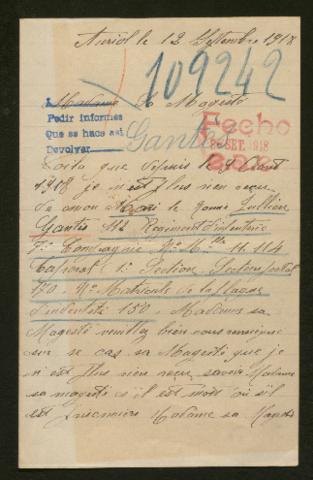 Auriol le 12 Septembre 1918
109242
Madame Sa Majesté
Pedir informes
Que se hace así
Devolver
Gantès
Fecho
SET. 1918
que depuis le 9 Aout
1918 je n'est plus rien reçu
de mon mari le nommé Jullien
Gantès 112 Regiment d'infanterie
7e Compagnie No Mlle 11.114
Caporal 1e Section Secteur postal
170. No Matricule de la plaque
d'indentité 150. Madame sa
Majesté veuillez bien vous renseigner
sur se cas sa Magesté que je
n'est plus rien reçu savoir Madame
sa magesté s'il est mort ou s'il
est prisonnier Madame sa Magesté